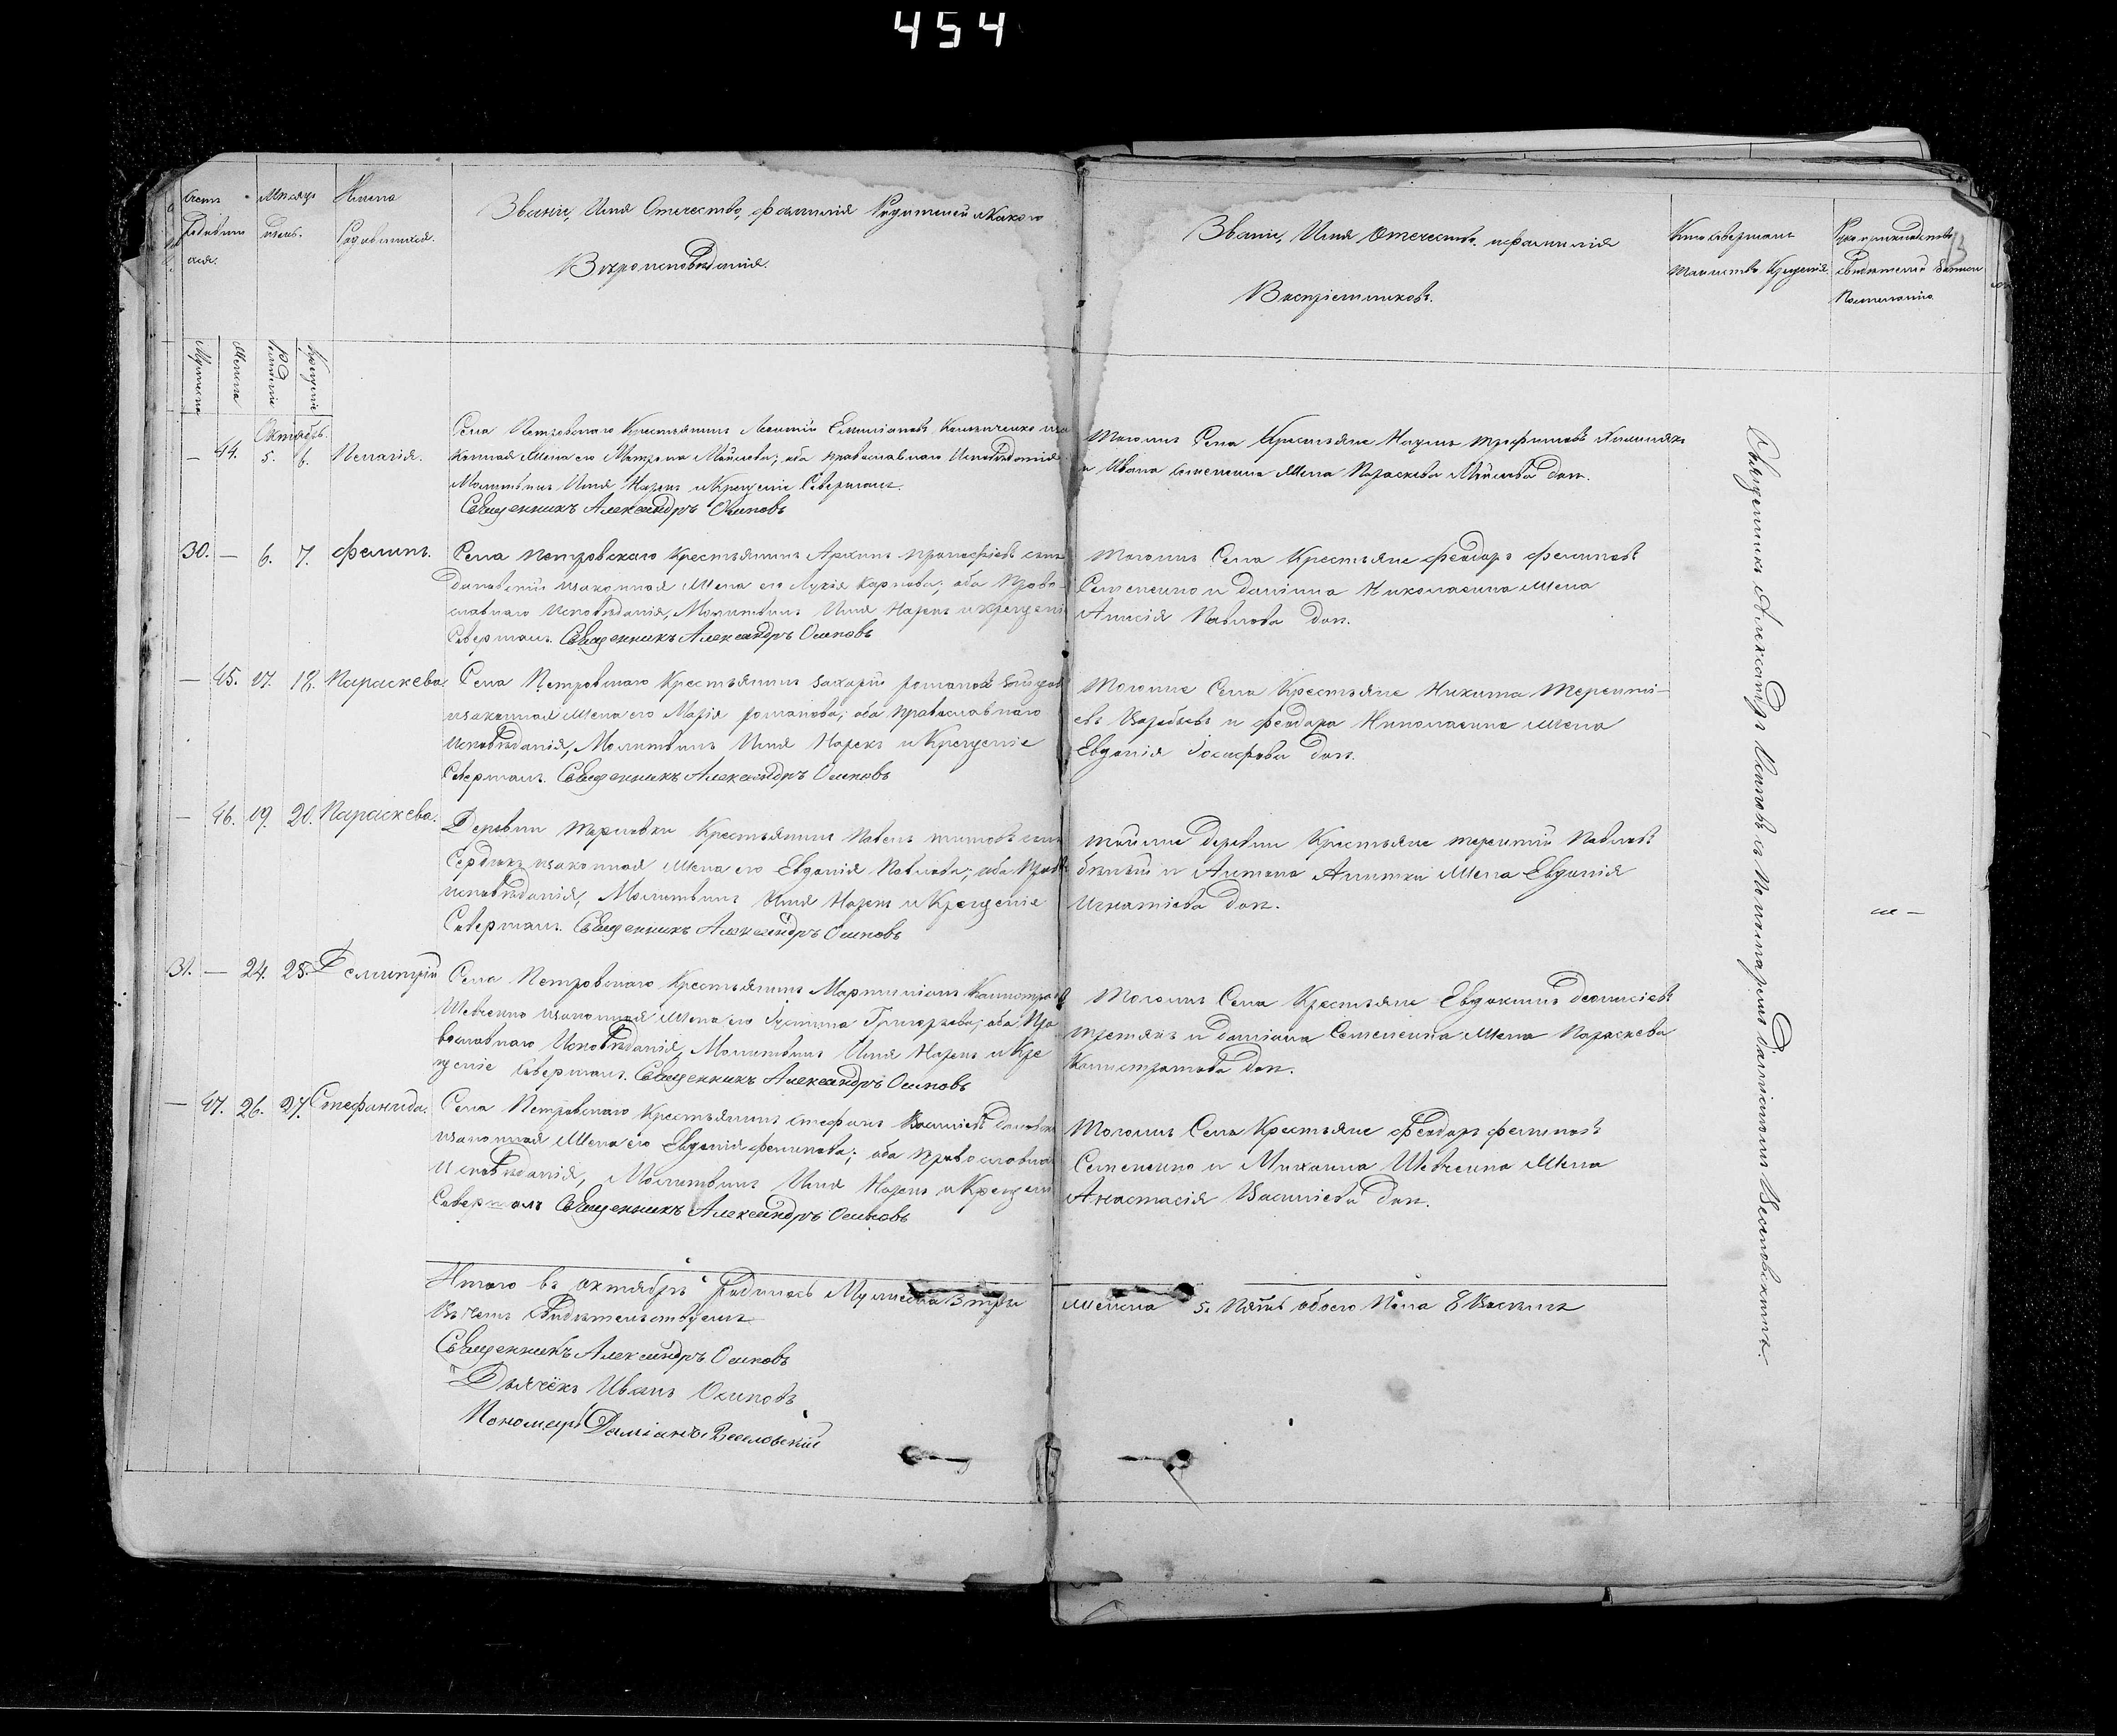 454
Счетъ
Родивши
хся.
Мѣсяцъ
день.
Имена
Родившихся.
Званіе, Имя Отечество, фамилія Родителей и Какого
Вѣроисповѣданія.
Званіе, Имя Отечество, и фамилія
Воспріемниковъ.
Кто совершалъ
Таинство Крещенія.
Рукоприкладство
свидетелей записи
По желанію
13
Мужеска
Женска
Рожденіе
Крещеніе
Октябрь.
— 44. 5. 6. Пелагія.
Села Петровскаго Крестьянинъ Леонтій Емиліановъ
конная Жена его Матрона Мойсеева; оба православнаго Исповѣданія
Молитвилъ Имя Нарекъ и Крещеніе Совершалъ.
Священникъ Александръ Осиповъ
Тогожъ Села Крестьяне Наумъ Трофимовъ
и Ивана Семенина Жена Параскева Мойсеева доч.
30. — 6. 7. Филипъ.
Села Петровскаго Крестьянинъ Архипъ сынъ
изаконная Жена его Лукія Карпова; оба Право-
славнаго Исповѣданія, Молитвилъ Имя Нарекъ и крещеніе
Совершалъ. Священникъ Александръ Осиповъ
Тогожъ Села Крестьяне Феодоръ Филиповъ
Семененко и Даміина Николаенка Жена
Анисія Павлова доч.
— 45. 17. 18. Параскева.
Села Петровскаго Крестьянинъ Захарій Романовъ
изаконная Жена его Марія Романова; оба Православнаго
Исповѣданія, Молитвилъ Имя Нарекъ и Крещеніе
Совершалъ. Священникъ Александръ Осиповъ
Тогожъ Села Крестьяне Никита Теренті-
евъ и Феодора Николаенка Жена
Евдокія Іосифова доч.
— 46. 19. 20. Параскева.
Деревни Крестьянинъ Павелъ Титовъ сынъ
Сердюкъ изаконная Жена его Евдокія Павлова; оба Прав
исповѣданія, Молитвилъ Имя Нарекъ и Крещеніе
Совершалъ. Священникъ Александръ Осиповъ
Тойже деревни Крестьяне Терентій Павловъ
и Антона Жена Евдокія
Игнатіева доч.
31. — 24. 25. Демитрій
Села Петровскаго Крестьянинъ Мартиніанъ
Шевченко изаконная Жена его Іустина Григорьева; оба Пра
вославнаго Исповѣданія, Молитвилъ Имя Нарекъ и Кре
щеніе Совершалъ. Священникъ Александръ Осиповъ
Тогожъ Села Крестьяне Евдокимъ Деонисіевъ
Третякъ и Даміана Семененка Жена Параскева
Калистратова доч.
— 47. 26. 27. Стефанида.
Села Петровскаго Крестьянинъ Стефанъ Василіевъ
изаконная Жена его Евдокія Филипова; оба Православнаго
Исповѣданія, Молитвилъ Имя Нарекъ и Крещеніе
Совершалъ Священникъ Александръ Осиповъ
Тогожъ Села Крестьяне Феодоръ Филиповъ
Семененко и Михаила Шевченка Жена
Анастасія Василіева доч.
Священникъ Александръ Осиповъ съ Пономаремъ Даміаномъ Веселовскимъ.
Итого въ октябрѣ Родилось Мужеска 3 три женска 5. Пять обоего Пола 8 Восемь
Въ чемъ Свидѣтельствуемъ
Священникъ Александръ Осиповъ
Дьячекъ Иванъ Осиповъ
Пономарь Даміанъ Веселовскій